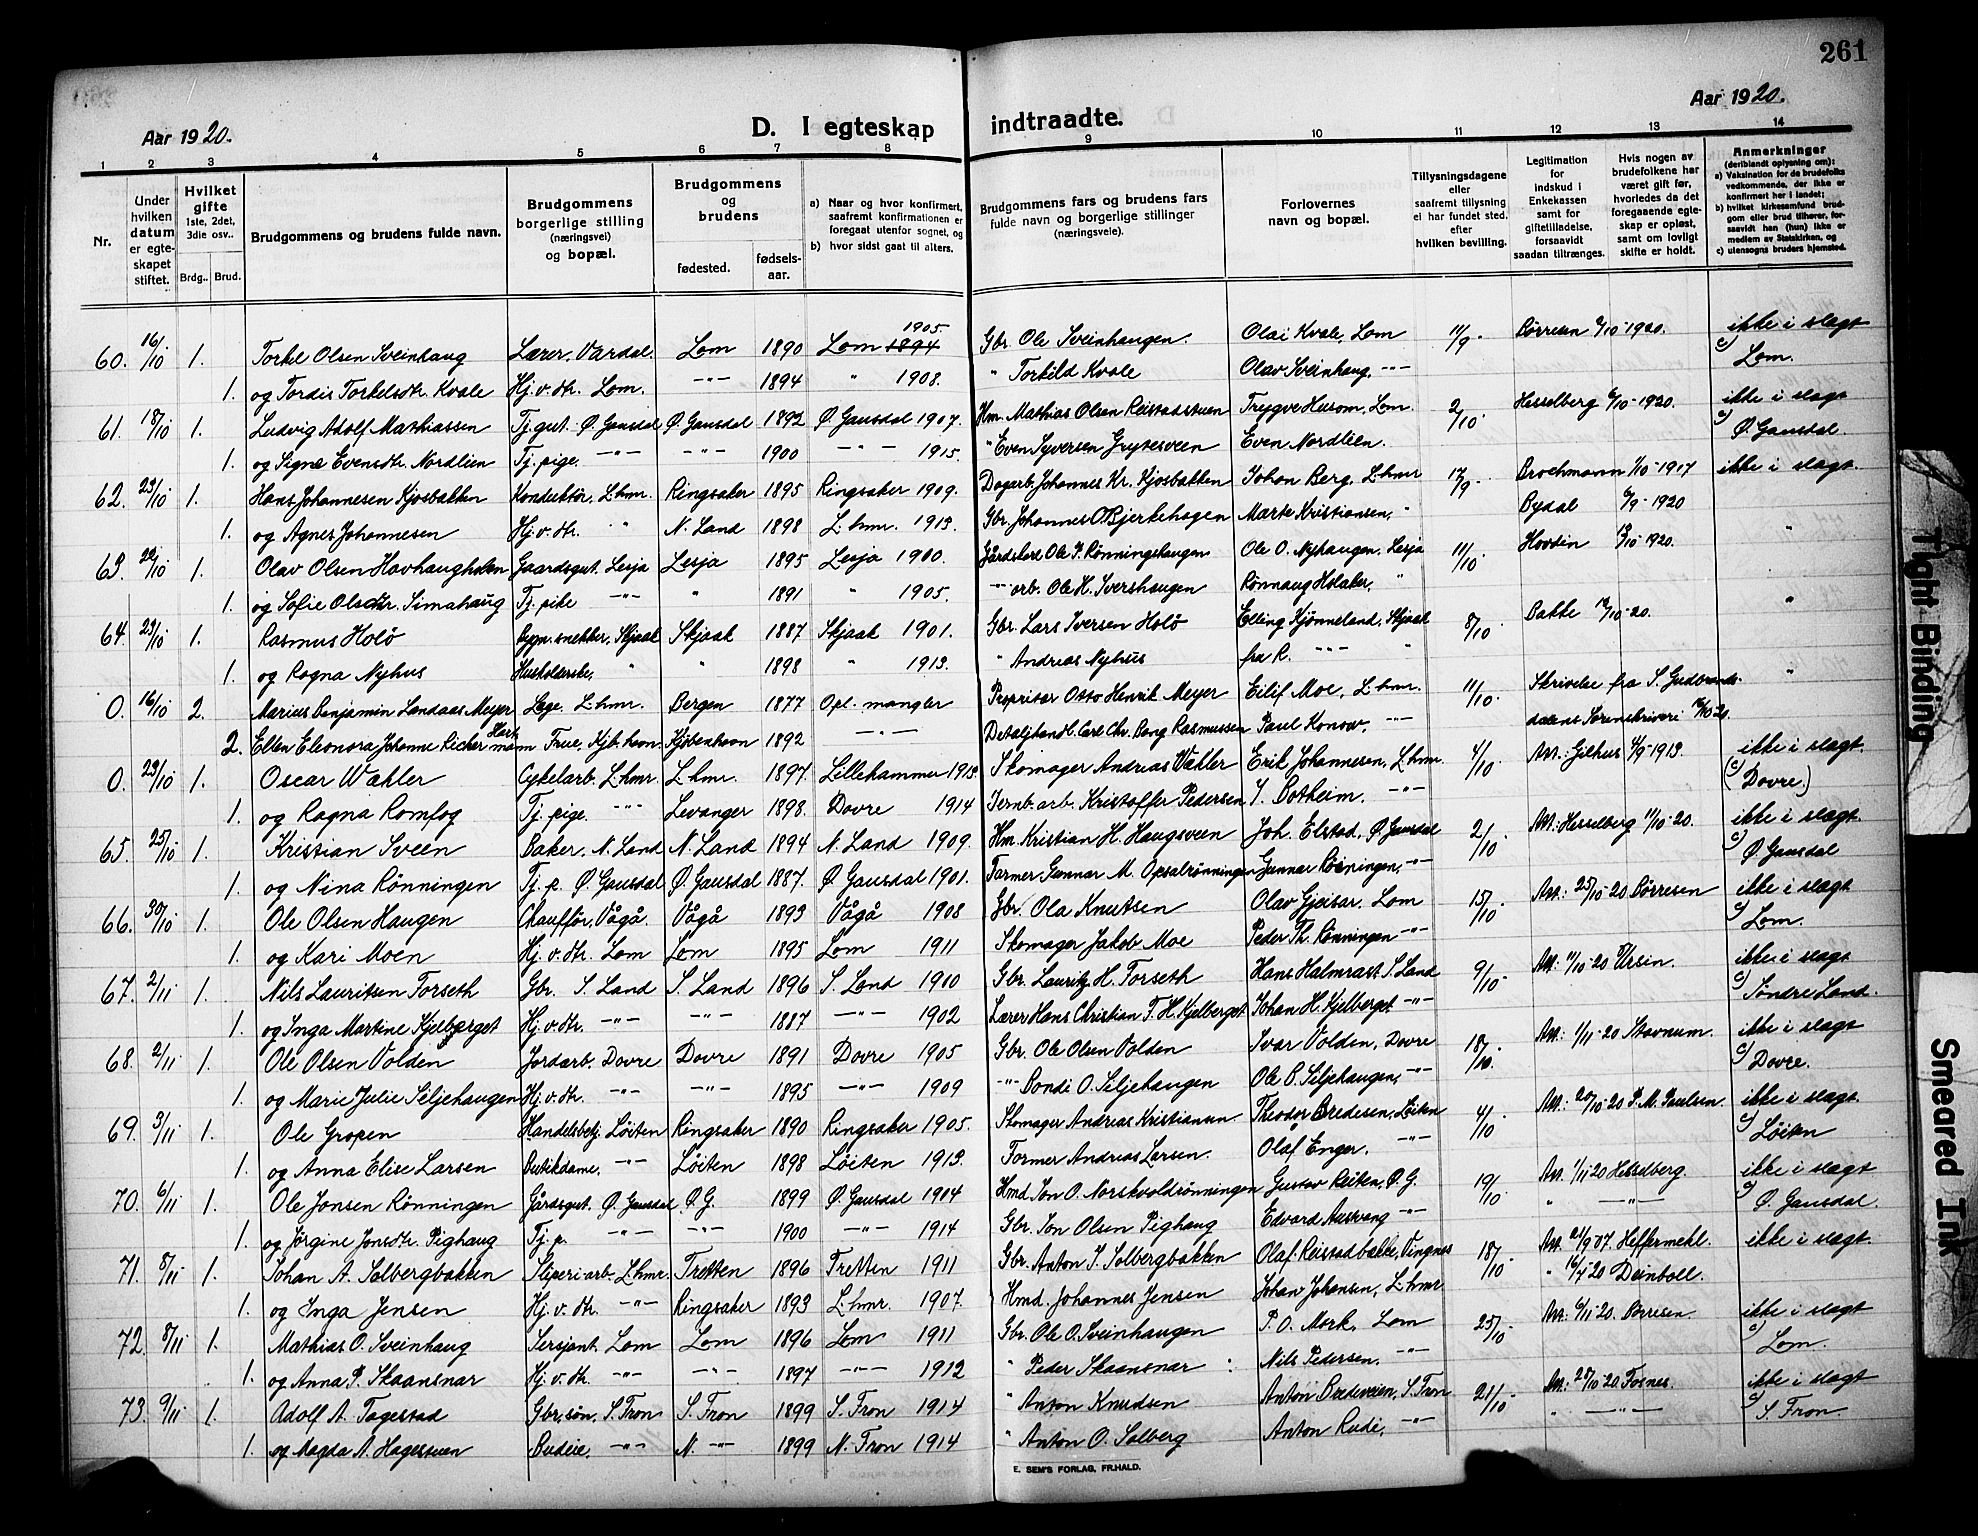 261
Aar 1920.
D. I egteskap indtraadte.
Aar 1920.
1 2 3 4 5 6 7 8 9 10 11 12 13 14
Nr.
Under hvilken datum er egteskapet stiftet.
Hvilket gifte 1ste, 2det, 3die osv..
Brdg.. Brud.
Brudgommens og brudens fulde navn.
Brudgommens borgerlige stilling (næringsvei) og bopæl.
Brudgommens og brudens
fødested. fødsels-aar.
a) Naar og hvor konfirmert, saafremt konfirmationen er foregaat utenfor sognet, og
b) hvor sidst gaat til alters.
Brudgommens fars og brudens fars fulde navn og borgerlige stillinger (næringsveie).
Forlovernes navn og bopæl.
Tillysningsdagene eller saafremt tillysning ei har fundet sted. efter hvilken bevilling.
Legitimation for indskud i Enkekassen samt for giftetilladelse, forsaavidt saadan tiltrænges.
Hvis nogen av brudefolkene har været gift før, hvorledes da det foregaaende egteskap er opløst, samt om lovligt skifte er holdt.
Anmerkninger (deriblandt oplysning om):
a) Vaksination for de brudefolks vedkommende, der ikke er konfirmert her i landet;
b) hvilket kirkesamfund brudgom eller brud tilhører, forsaavidt han (hun) ikke er medlem av Statskirken, og
c) utensogns bruders hjemsted.
60. 16/10 1. Torkel Olsen Sveinhaug Lærer, Vardal. Lom 1890 Lom 1894 1905. Gbr. Ole Sveinhaugen. Olai Kvale, Lom 11/9. Børresen 6/10-1920. ikke i slægt
1. og Tordis Torkelsdtr. Kvale Hj.v.dtr. Lom. -"- 1894 " 1908. " Torkild Kvale Olav Sveinhaug, -"- c) Lom.
61. 18/10 1. Ludvig Adolf Mathiassen Tj.gut. Ø. Gausdal Ø. Gausdal 1892 Ø. Gausdal 1907. Hm. Mathias Olsen Reistadstuen Trygve Husom, Lom. 2/10. Hesselberg 6/10-1920. ikke i slægt
1. og Signe Evensdtr. Nordlien Tj. pige. -"- -"- 1900 -"- 1915. " Even Syversen Grytesveen Even Nordlien. c) Ø. Gausdal.
62. 23/10 1. Hans Johannesen Kjosbakken Konduktør, L.hmr. Ringsaker 1895 Ringsaker 1909. Dagarb. Johannes Kr. Kjosbakken Johan Berg, L.hmr 17/9. Brochmann 1/10-1917 ikke i slægt.
1. og Agnes Johannesen Hj.v.dtr. " N. Land 1898 L.hmr. 1913. Gbr. Johannes O. Bjerkehagen Marte Kristiansen, " Bydal 6/9-1920
63. 22/10 1. Olav Olsen Havhaughelen Gaardsgut. Lesja Lesja 1895 Lesja 1900. Gårdsleil. Ole P. Rønningshaugen Ole O. Nyhaugen, Lesja 11/10. Hovdin 13/10-1920. "
1. og Sofie Olsdtr. Simahaug Tj. pike -"- " 1891 " 1905. -"- arb. Ole H. Svershaugen Rønnaug Holaker, "
64. 23/10 1. Rasmus Holø Bygn.snekker, Skjaak Skjaak 1887 Skjaak 1901. Gbr. Lars Iversen Holø Elling Kjønneland, Skjaak 8/10. Bakke 12/10-20. "
1. og Ragna Nyhus Husholderske, " " 1898 " 1913. " Andreas Nyhus fra R. -"- "
0. 16/10 2. Marius Benjamin Landaas Meyer Læge, L.hmr. Bergen 1877 Opl. mangler Proprietær Otto Henrik Meyer Eilif Moe, L.hmr. 11/10. Skrivelse fra S. Gudbrands- "
2. Ellen Eleonora Johanne Richer Hartmann Frue, Kjb.havn Kjøbenhavn 1892 -"- Detaljhandl. Carl Chr. Bang Rasmussen Paul Konow, -"- dalens Sorenskriveri 10/10 20.
0. 23/10 1. Oscar Wæhler Cykelarb. L.hmr. L.hmr. 1897. Lillehammer 1913. Skomager Andreas Wæhler Erik Johannesen, L.hmr. 4/10. Att: Gilhus 4/9-1913. ikke i slægt.
1. og Ragna Romfog Tj. pige. -"- Levanger 1898. Dovre 1914 Jernb.arb. Kristoffer Pedersen J. Botheim. -"- c) (Dovre.)
65. 25/10 1. Kristian Sveen Baker, N. Land N. Land 1894 N. Land 1909. Hm. Kristian H. Haugsveen Joh. Elstad, Ø. Gausdal 2/10. Att: Hesselberg 11/10-20. ikke i slægt.
1. og Nina Rønningen Tj. p. Ø. Gausdal Ø. Gausdal 1887. Ø. Gausdal 1901. Farmer Gunnar M. Opsalrønningen Gunnar Rønningen, -"- c) Ø. Gausdal
66. 30/10 1. Ole Olsen Haugen Chauffør, Vågå. Vågå 1893 Vågå 1908 Gbr. Ola Knutsen Olav Gjeisar, Lom 15/10. Att: 25/10-20 Børresen ikke i slægt
1. og Kari Moen Hj.v.dtr. Lom Lom 1895 Lom 1911 Skomager Jakob Moe Peder Th. Rønningen -"- c) Lom.
67. 2/11 1. Nils Lauritsen Forseth Gbr. S. Land S. Land 1896 S. Land 1910 Gbr. Lauritz H. Forseth Hans Halmrast S. Land 9/10. Att: 11/10-20 Ursin. ikke i slægt
1. og Inga Martine Kjelberget Hj.v.dtr. -"- -"- 1887 -"- 1902 Lærer Hans Christian F. H. Kjelberget Johan H. Kjelberget -"- c) Søndre Land.
68. 2/11 1. Ole Olsen Volden Jordarb. Dovre Dovre 1891 Dovre 1905 Gbr. Ole Olsen Volden Ivar Volden, Dovre 18/10. Att: 1/11-20 Stavnum. ikke i slægt
1. og Marie Julie Seljehaugen Hj.v.dtr. -"- -"- 1895 -"- 1909 -"- Bondi O. Seljehaugen Ole B. Seljehaugen, -"- c) Dovre.
69. 3/11 1. Ole Gropen Handelsbetj. Løiten Ringsaker 1890 Ringsaker 1905. Skomager Andreas Kristiansen Theodor Bredesen, Løiten 4/10. Att: 20/10-20 P. M. Paulsen. ikke i slægt
1. og Anna Elise Larsen Butikdame. -"- Løiten 1898 Løiten 1913. Former Andreas Larsen. Olaf Enger. -"- c) Løiten
70. 6/11 1. Ole Jonsen Rønningen Gårdsgut. Ø. Gausdal Ø. G. 1899 Ø. Gausdal 1904 Hmd. Jon O. Norskvoldrønningen Gustav Reiten, Ø. G. 19/10. Att: 1/11 20 Hesselberg. ikke i slægt
1. og Jørgine Jonsdtr. Pighaug Tj. p. -"- -"- 1900 -"- 1914 Gbr. Jon Olsen Pighaug Edvard Austvang -"- " -"- c) Ø. Gausdal.
71. 8/11 1. Johan A. Solbergbakken Sliperiarb. L.hmr. Tretten 1896 Tretten 1911 Gbr. Anton J. Solbergbakken Olaf Reistadbakke, Vingnes 18/10. Att. 21/9 07. Heffermehl. ikke i slægt
1. og Inga Jensen Hj.v.dtr. -"- Ringsaker 1893 L.hmr. 1907. Hmd. Johannes Jensen Johan Johansen, L.hmr " 16/7-20 Deinboll.
72. 8/11 1. Mathias O. Sveinhaug Sersjant Lom Lom 1896 Lom 1911 Gbr. Ole O. Sveinhaugen P. O. Mork, Lom 25/10. Att: 6/11-20. Børresen. ikke i slægt
1. og Anna P. Skaansnar Hj.v.dtr. -"- -"- 1897 -"- 1912 " Peder Skaansnar Nils Pedersen. -"- c) Lom.
73. 9/11 1. Adolf A. Tagestad Gbr.søn, S. Fron S. Fron 1899 S. Fron 1914 " Anton Knudsen Anton Bredeveien, S. Fron 21/10. Att: 27/10-20. Fosnes. ikke i slægt
1. og Magda A. Hagestuen Budeie, -"- N. -"- 1899 N. Fron 1914 " Anton O. Solberg Anton Rudi, -"- " -"- c) S. Fron.
E. SEM'S FORLAG, FR.HALD.
Tight Binding
Smeared Ink